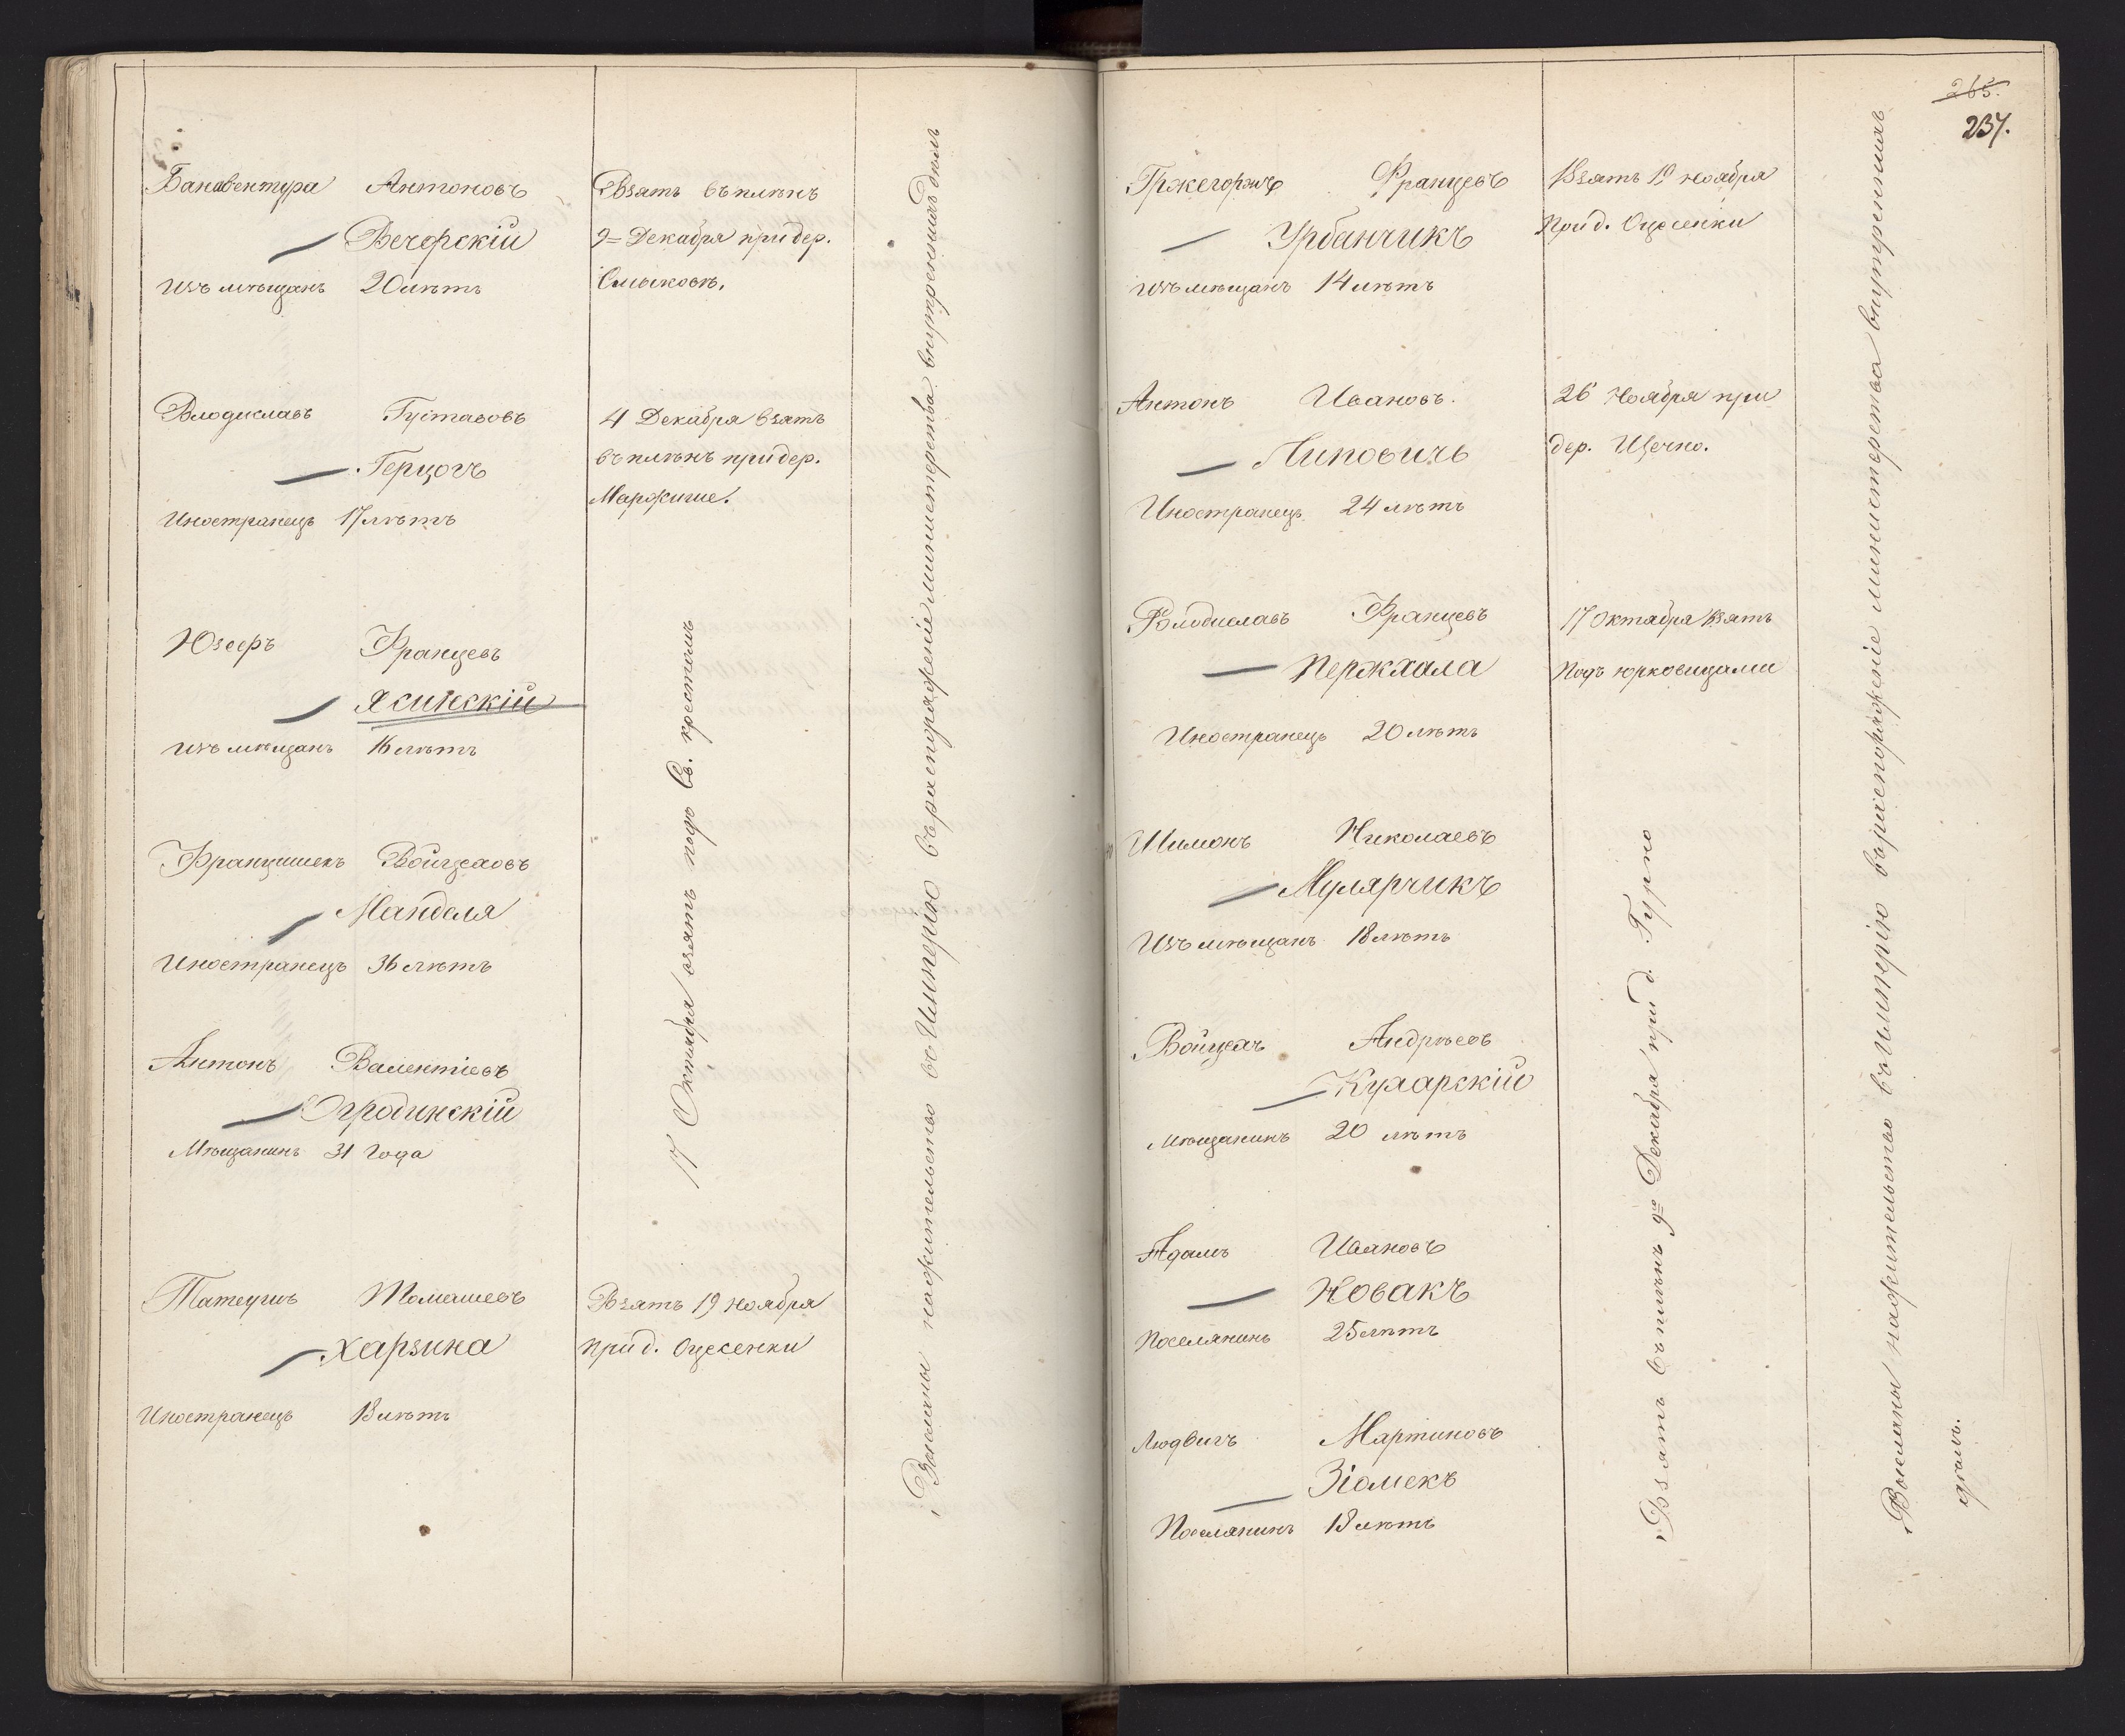 Банавентура Антоновъ
Вечерскій
Изъ мѣщанъ 20 лѣтъ
Взятъ въ плѣнъ
9= Декабря при дер.
Смыковѣ.
Влодиславъ Густавовъ
Герцогъ
Иностранецъ 17 лѣтъ
4 Декабря взятъ
въ плѣнъ при дер.
Маржигие.
Юзефъ Францевъ
Ясинскій
Изъ мѣщанъ 16 лѣтъ
Францишекъ Войцеховъ
Мандаля
Иностранецъ 36 лѣтъ
Антонъ Валентіевъ
Огродинскій
Мѣщанинъ 31 года
17 Октября взятъ подъ Св. крестомъ
Татеушъ Томашевъ
Харзина
Иностранецъ 18 лѣтъ
Взятъ 19 ноября
при д. Оцесенки
Высланы на жительство въ Имперію въ распоряженіе министерства внутреннихъ дѣлъ
265.
237.
Гржегоржъ Францевъ
Урбанчикъ
Изъ мѣщанъ 14 лѣтъ
Взятъ 19 ноября
при д. Оцесенки
Антонъ Ивановъ.
Липовичъ
Иностранецъ 24 лѣтъ
26 ноября при
дер. Щечно.
Влодиславъ Францевъ
Пержхала
Иностранецъ 20 лѣтъ
17 Октября взятъ
подъ Юрковицами
Шимонъ Николаевъ
Мулярчикъ
Изъ мѣщанъ 18 лѣтъ
Войцехъ Андрѣевъ
Кухарскій
Мѣщанинъ 20 лѣтъ
Адамъ Ивановъ
Новакъ
Поселянинъ 25 лѣтъ
Людвигъ Мартиновъ
Зіомекъ
Поселянинъ 18 лѣтъ
Взятъ въ плѣнъ 9го Декабря при д. Гурно
Высланы на жительство въ Имперію въ распоряженіе министерства внутреннихъ
дѣлъ.